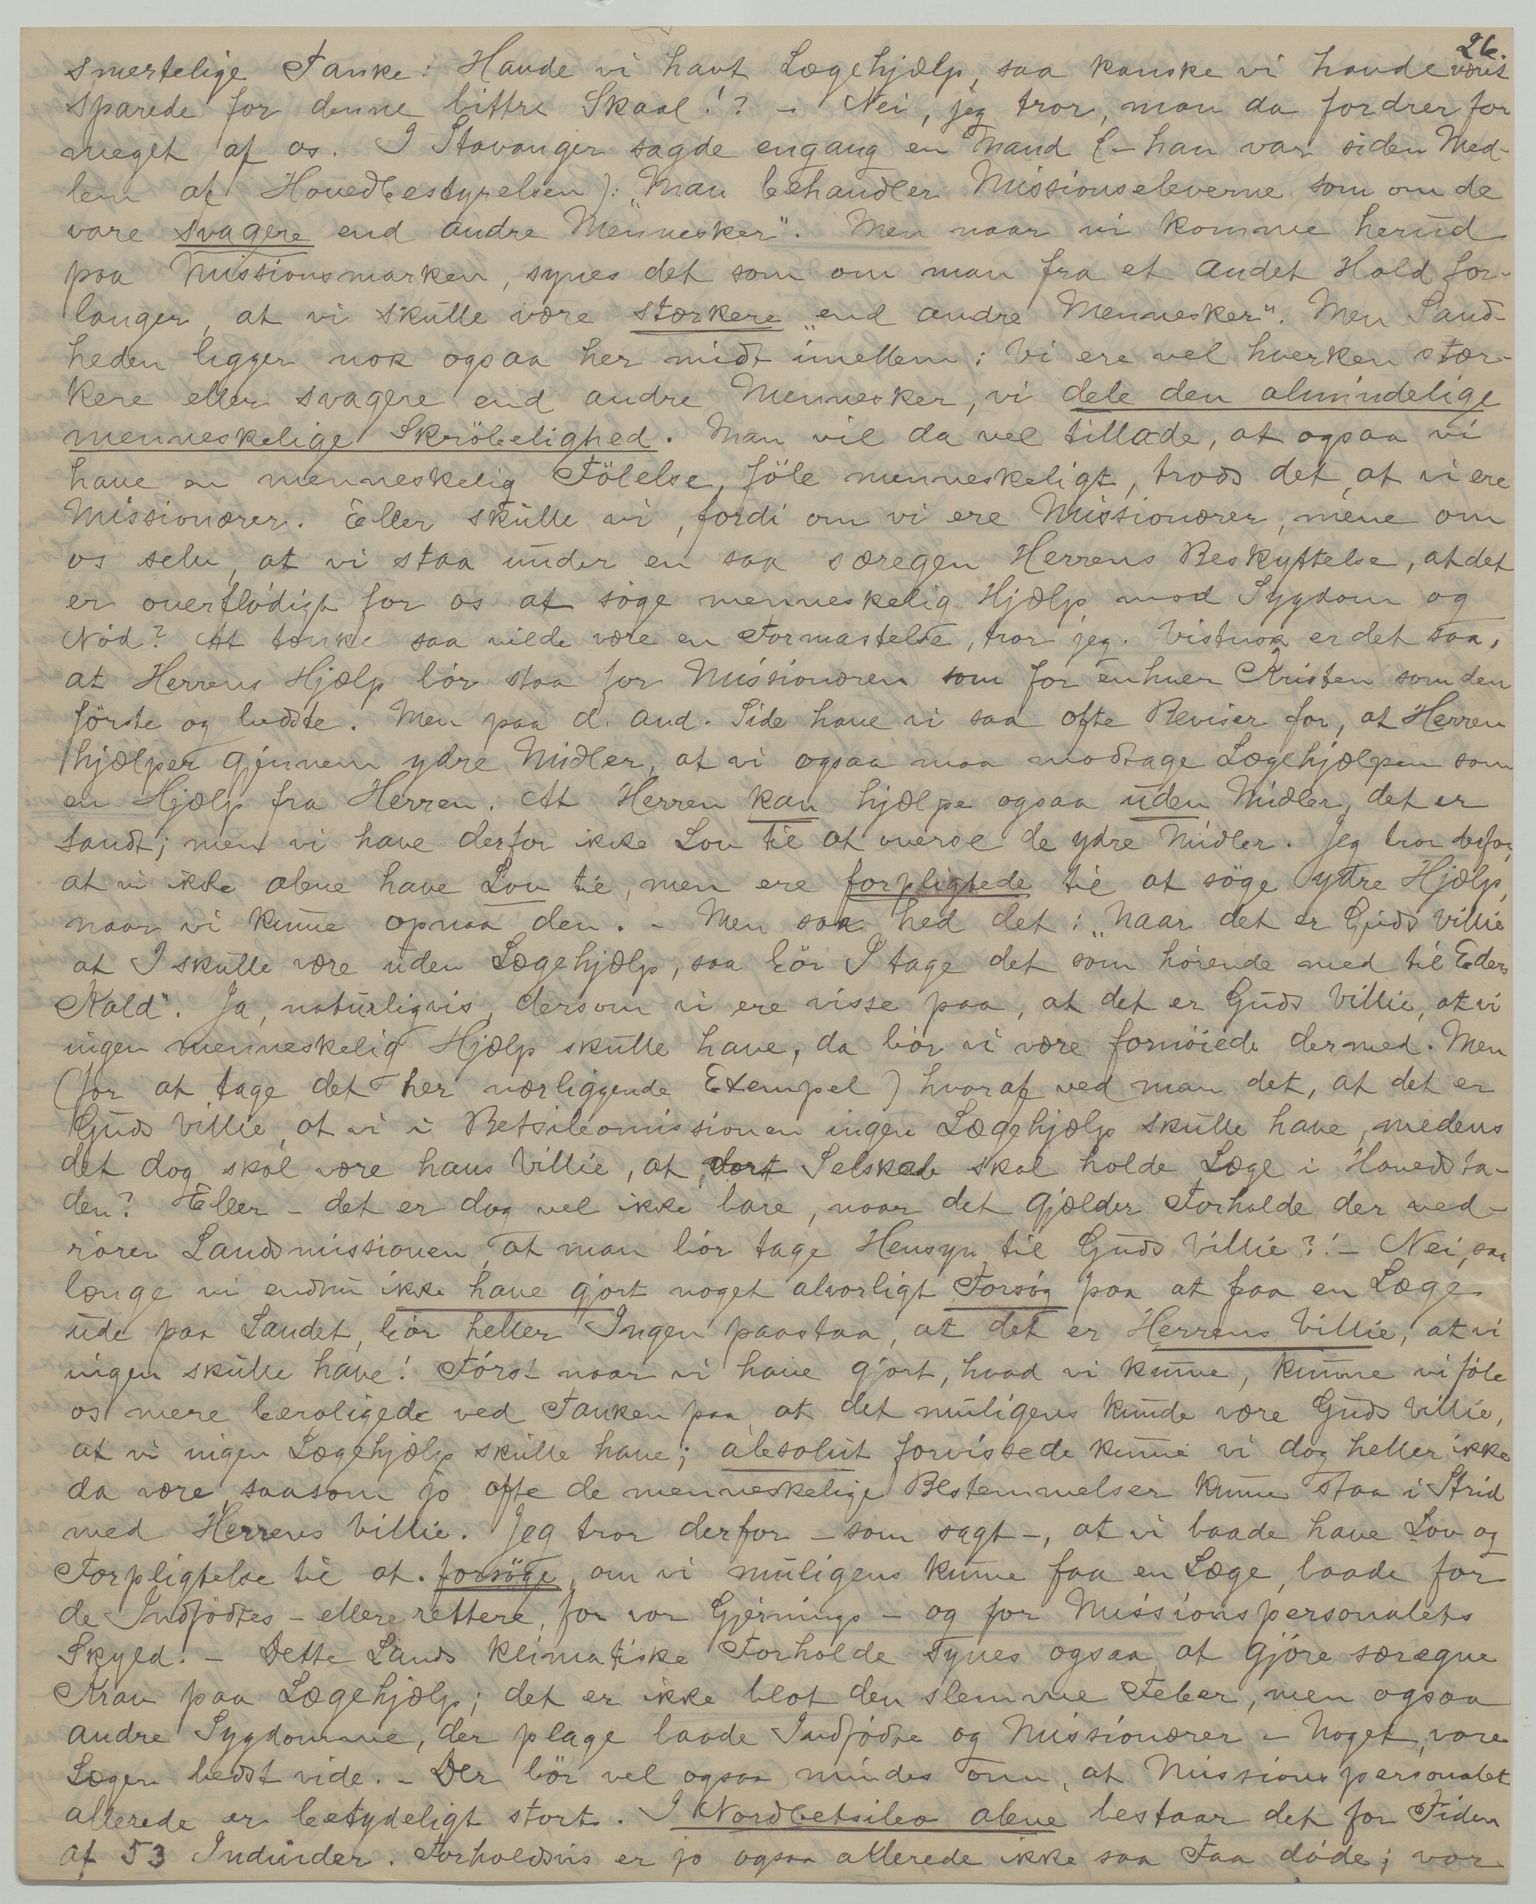 26.
smertelige Tanke: Havde vi havt Lægehjælp, saa kanske vi havde været
sparede for denne bittre Skaal!? - Nei, jeg tror, man da fordrer for
meget af os. I Stavanger sagde engang en Mand (- han var siden Med-
lem af Hovedbestyrelsen): "Man behandler Missionseleverne som om de
vare svagere end andre Mennesker". Men naar vi komme herud
paa Missionsmarken, synes det som om man fra et andet Hold for-
langer, at vi skulle være stærkere "end andre Mennesker". Men Sand-
heden ligger nok ogsaa her midt imellem: Vi ere vel hverken stær-
kere eller svagere end andre Mennesker, vi dele den almindelige
menneskelige Skröbelighed. Man vil da vel tillade, at ogsaa vi
have en menneskelig Fölelse, föle menneskeligt, trods det, at vi ere
Missionærer. Eller skulle vi, fordi om vi ere Missionærer, mene om
os selv, at vi staa under en saa særegen Herrens Beskyttelse, at det
er overflödigt for os at söge menneskelig Hjælp mod Sygdom og
Nöd? At tænke saa vilde være en Formastelse, tror jeg. Vistnok er det saa,
at Herrens Hjælp bör staa for Missionæren som for enhver Kristen som den
förste og bedste. Men paa d. and. Side have vi saa ofte Beviser for, at Herren
hjælper gjennem ydre Midler, at vi ogsaa maa modtage Lægehjælpen som
en Hjælp fra Herren. At Herren kan hjælpe ogsaa uden Midler, det er
sandt; men vi have derfor ikke Lov til at overse de ydre Midler. Jeg tror derfor,
at vi ikke alene have Lov til, men ere forpligtede til at söge ydre Hjælp,
naar vi kunne opnaa den. - Men saa hed det: "Naar det er Guds Villie
at I skulle være uden Lægehjælp, saa bör I tage det som hörende med til Eders
Kald". Ja, naturligvis, dersom vi ere visse paa, at det er Guds Villie, at vi
ingen menneskelig Hjælp skulle have, da bör vi være fornöiede dermed. Men
(for at tage det her nærliggende Exempel) hvoraf ved man det, at det er
Guds Villie, at vi i Betsileomissionen ingen Lægehjælp skulle have, medens
det dog skal være hans Villie, at vort Selskab skal holde Læge i Hovedsta-
den? Eller - det er dog vel ikke bare, naar det gjælder Forholde der ved-
rörer Landsmissionen, at man bör tage Hensyn til Guds Villie?! - Nei, saa
længe vi endnu ikke have gjort noget alvorligt Forsög paa at faa en Læge
ude paa Landet, bör heller Ingen paastaa, at det er Herrens Villie, at vi
ingen skulle have! Först naar vi have gjort, hvad vi kunne, kunne vi föle
os mere beroligede ved Tanken paa, at det muligens kunde være Guds Villie,
at vi ingen Lægehjælp skulle have; absolut forvissede kunne vi dog heller ikke
da være, saasom jo ofte de menneskelige Bestemmelser kunne staa i Strid
med Herrens Villie. Jeg tror derfor - som sagt -, at vi baade have Lov og
Forpligtelse til at forsöge, om vi muligens kunne faa en Læge, baade for
de Indfödtes - ellere rettere, for vor Gjernings - og for Missionspersonalets
Skyld. - Dette Lands klimatiske Forholde synes ogsaa at gjöre særegne
Krav paa Lægehjælp; det er ikke blot den slemme Feber, men ogsaa
andre Sygdomme, der plage baade Indfödte og Missionærer - noget, vore
Læger bedst vide. - Der bör vel ogsaa mindes om, at Missionspersonalet
allerede er betydeligt stort. I Nordbetsileo alene bestaar det for Tiden
af 53 Individer. Forholdsvis er jo ogsaa allerede ikke saa Faa döde; vor